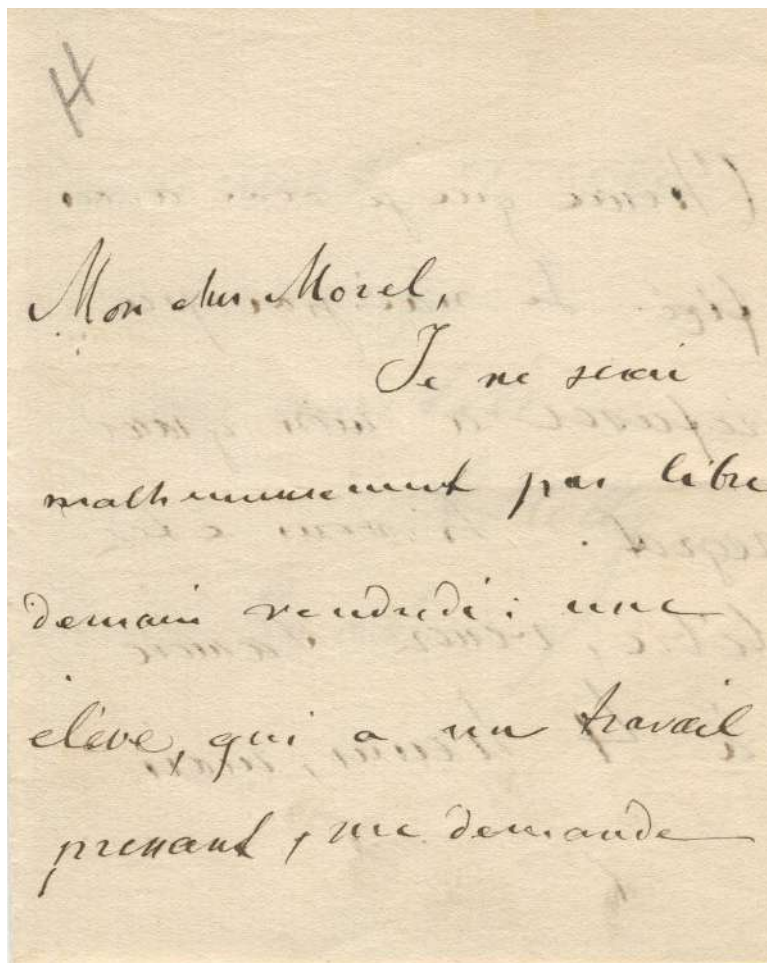 4
Mon cher Morel,
Je ne serai
malheureusement pas libre
demain vendredi ; une
élève, qui a un travail
pressant, me demande